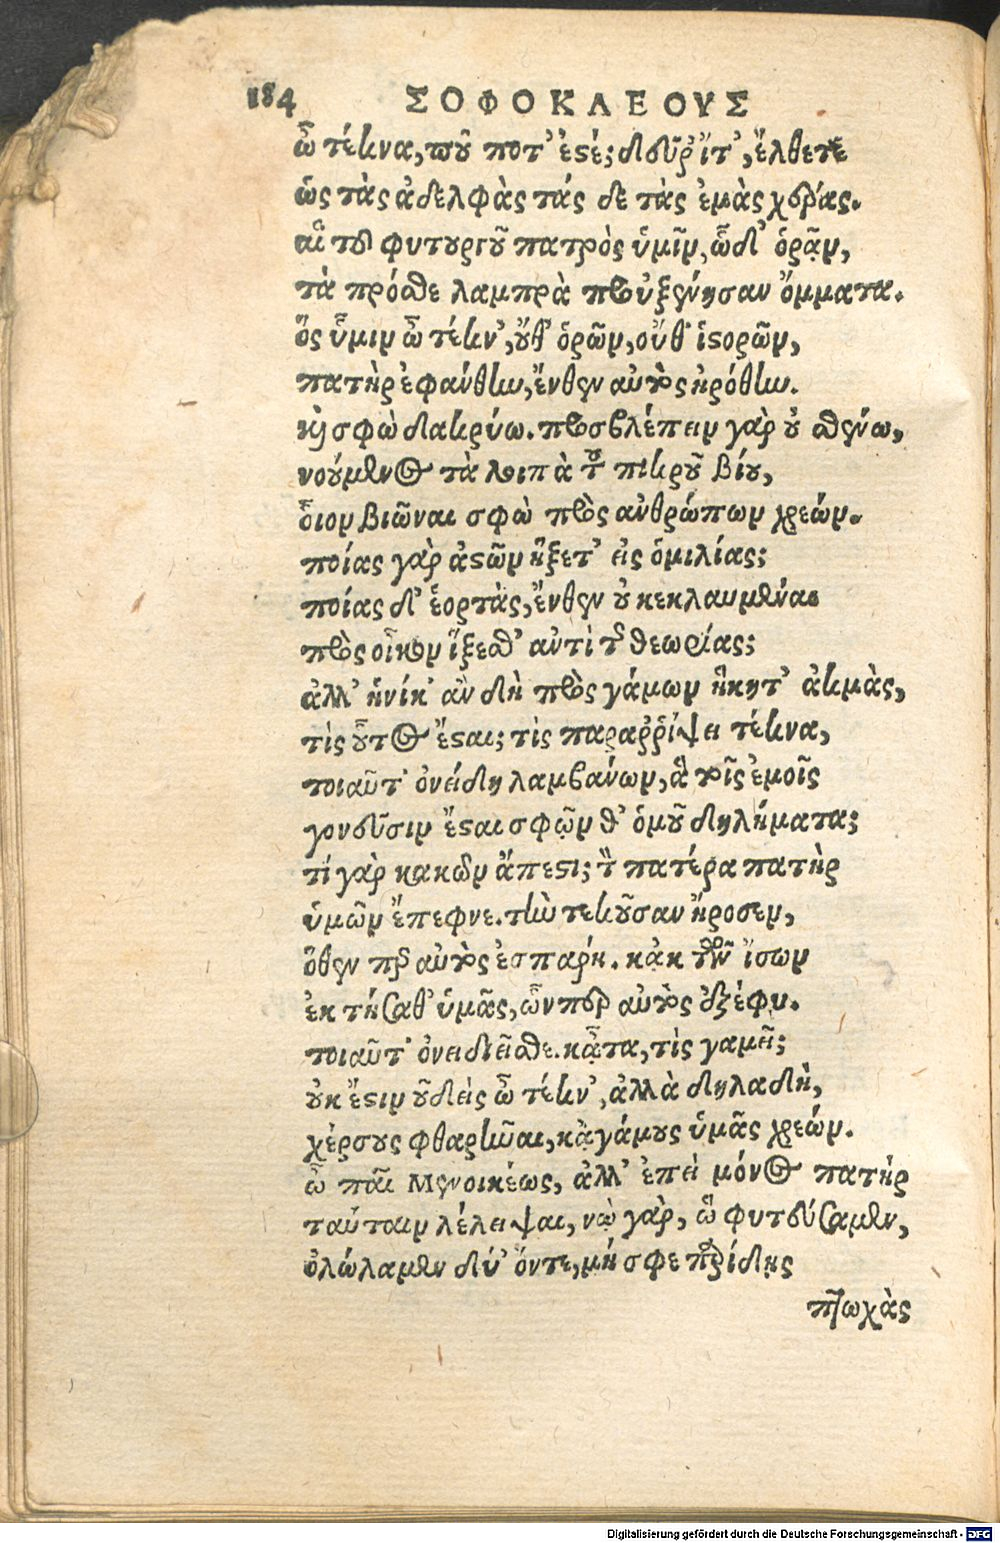 184 ΣΟΦΟΚΛΕΟΥΣ
ὦ τέκνα, ποῦ ποτ' ἐστέ; δεῦρ' ἴτ', ἔλθετε
ὡς τὰς ἀδελφὰς τάς δε τὰς ἐμὰς χέρας.
αἳ τοῦ φυτουργοῦ πατρὸς ὑμῖν, ὧδ' ὁρᾷν,
τὰ πρόσθε λαμπρὰ προὐξένησαν ὄμματα.
ὃς ὗμιν ὦ τέκν', οὔθ' ὁρῶν, οὔθ' ἱστορῶν,
πατὴρ ἐφάνθην, ἔνθεν αὐτὸς ἠρόθην.
καὶ σφὼ δακρύω. προσβλέπειν γὰρ οὐ σθένω,
νοούμενος τὰ λοιπὰ τοῦ πικροῦ βίου,
οἷον βιῶναι σφὼ πρὸς ἀνθρώπων χρεών.
ποίας γὰρ ἀστῶν ἥξετ' εἰς ὁμιλίας;
ποίας δ' ἑορτὰς, ἔνθεν οὐ κεκλαυμέναι
πρὸς οἶκον ἵξεσθ' αὐτὶ τῆς θεωρίας;
ἀλλ' ἡνίκ' ἂν δὴ πρὸς γάμων ἥκητ' ἀκμὰς,
τὶς οὗτος ἔσται; τὶς παραῤῥίψει τέκνα,
τοιαῦτ' ὀνείδη λαμβάνων, ἃ τοῖς ἐμοῖς
γονεῦσιν ἔσται σφῷν θ' ὁμοῦ δηλήματα;
τί γὰρ κακῶν ἄπεστι; τὸν πατέρα πατὴρ
ὑμῶν ἔπεφνε. τὴν τεκοῦσαν ἤροσεν,
ὅθεν περ αὐτὸς ἐσπάρη. κᾀκ τῶν ἴσων
ἐκτήσαθ' ὑμᾶς, ὧνπερ αὐτὸς ἐξέφυ.
τοιαῦτ' ὀνειδιεῖσθε. κᾆτα, τὶς γαμεῖ;
οὐκ ἔστιν οὐδεὶς ὦ τέκν', ἀλλὰ δηλαδὴ,
χέρσους φθαρῆναι, κᾀγάμους ὑμᾶς χρεών.
ὦ παῖ Μενοικέως, ἀλλ' ἐπεὶ μόνος πατὴρ
ταύταιν λέλειψαι, νὼ γὰρ, ὣ φυτεύσαμεν,
ὀλώλαμεν δύ' ὄντε, μή σφε περιίδῃς
πτωχὰς
Digitalisierung gefördert durch die Deutsche Forschungsgemeinschaft - DFG